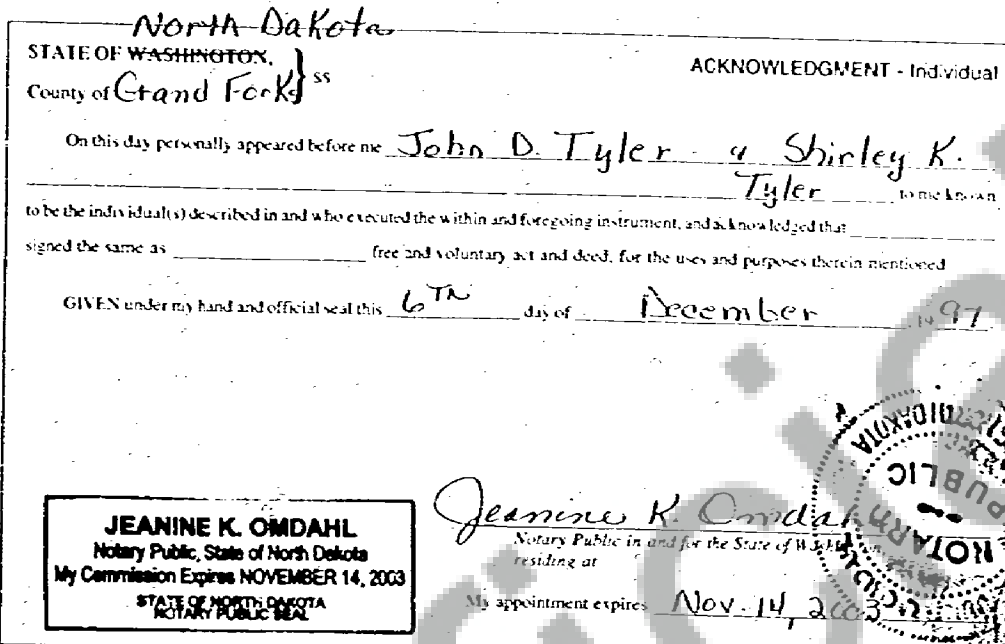 North Dakota
STATE OF WASHINGTON,
ACKNOWLEDGMENT - Individual
County of Grand Forks } SS
On this day personally appeared before me John D. Tyler & Shirley K.
Tyler to me known
to be the individual(s) described in and who executed the within and foregoing instrument, and acknowledged that
signed the same as free and voluntary act and deed, for the uses and purposes therein mentioned
GIVEN under my hand and official seal this 6TH day of December, 1997
Jeanine K. Omdahl
Notary Public in and for the State of Washington,
residing at
My appointment expires Nov. 14, 2003
JEANINE K. OMDAHL
Notary Public, State of North Dakota
My Commission Expires NOVEMBER 14, 2003
STATE OF NORTH DAKOTA
NOTARY PUBLIC SEAL
NOTARY
PUBLIC
DAKOTA